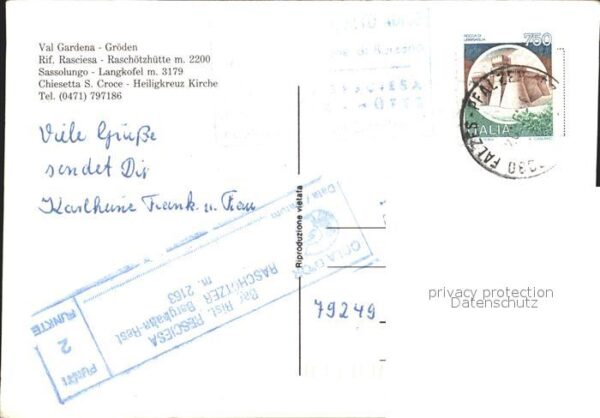 Val Gardena - Gröden
Rif. Rasciesa - Raschötzhütte m. 2200
Sassolungo - Langkofel m. 3179
Chiesetta S. Croce - Heiligkreuz Kirche
Tel. (0471) 797186
Viele Grüße
sendet Dir
Karlheinz Frank u. Frau
Riproduzione vietata
ROCCA DI
750
ITALIA
FALZES - PFALZEN
Bar Rist. RESCIESA
Bergbahn-Rest
RASCHÖTZER
m. 2163
PUNTI
2
PUNKTE
79249
privacy protection
Datenschutz